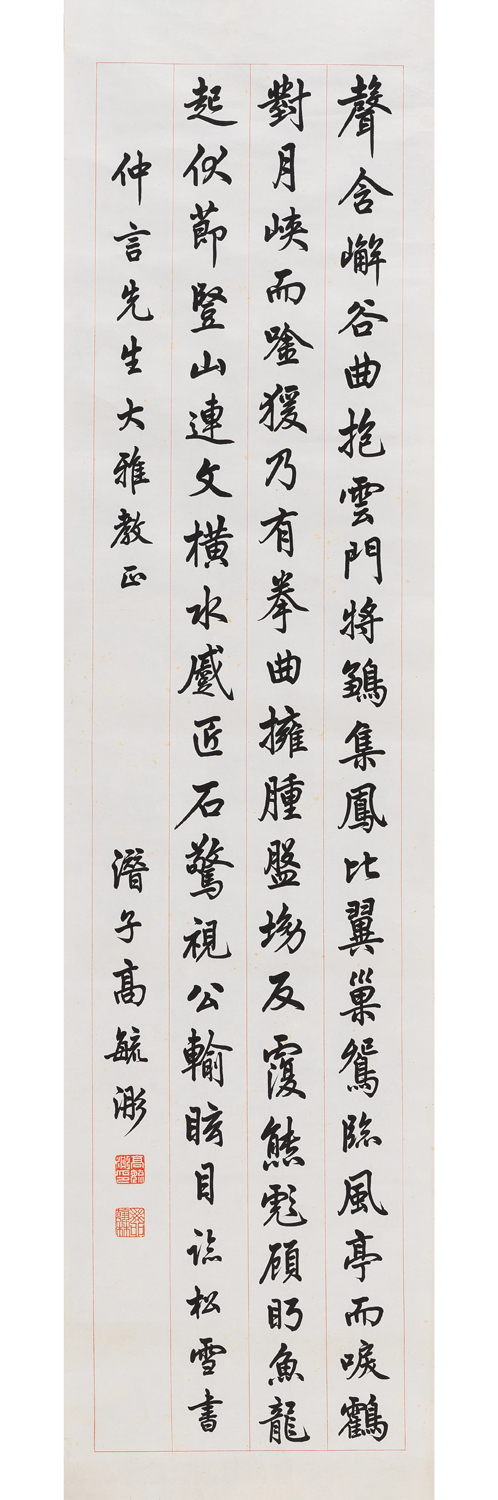 聲含嶰谷曲抱雲門將鶵集鳳比翼巢鴛臨風亭而唳鶴
對月峽而唫猨乃有拳曲擁腫盤坳反覆熊彪顧盼魚龍
起伏節豎山連文橫水蹙匠石驚視公輸眩目臨松雪書
仲言先生大雅教正
潛子高毓浵